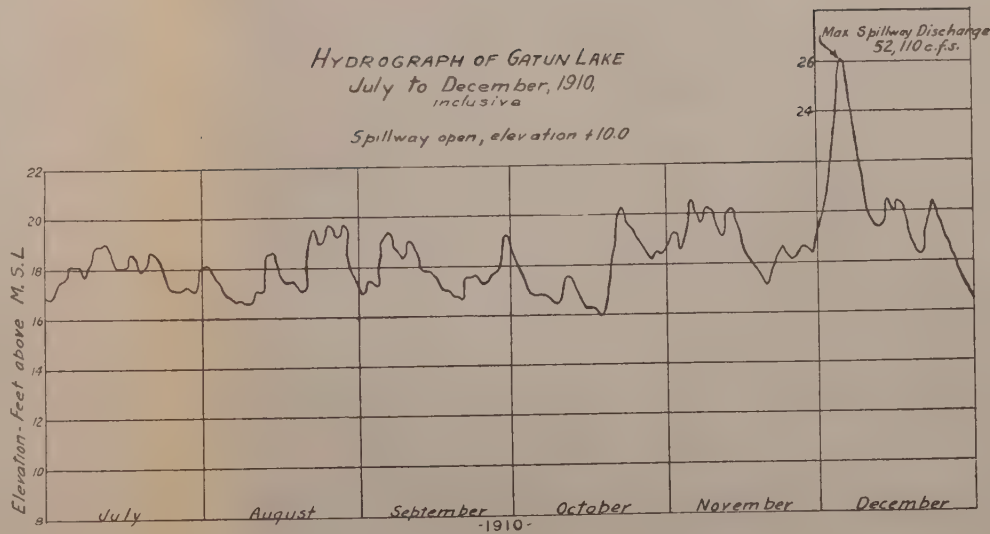 HYDROGRAPH OF GATUN LAKE
July to December, 1910,
inclusive
Spillway open, elevation +10.0
Max Spillway Discharge
52,110 c.f.s.
26
24
22
20
18
16
14
12
10
8
Elevation - Feet above M.S.L
July August September October November December
-1910-